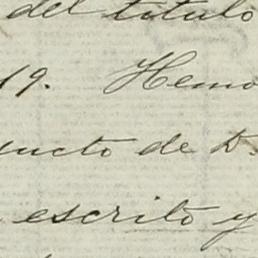 del titulo
19. Hemo
ucto de D.
escrito y